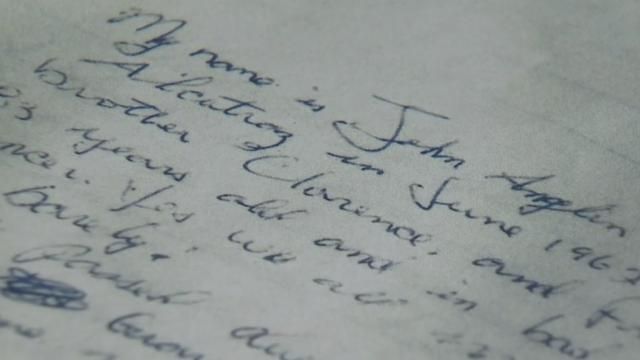 My name is John Anglin
Alcatraz in June 1962
brother Clarence and F
83 years old and in bad
ncer. Yes we all
barely!
passed